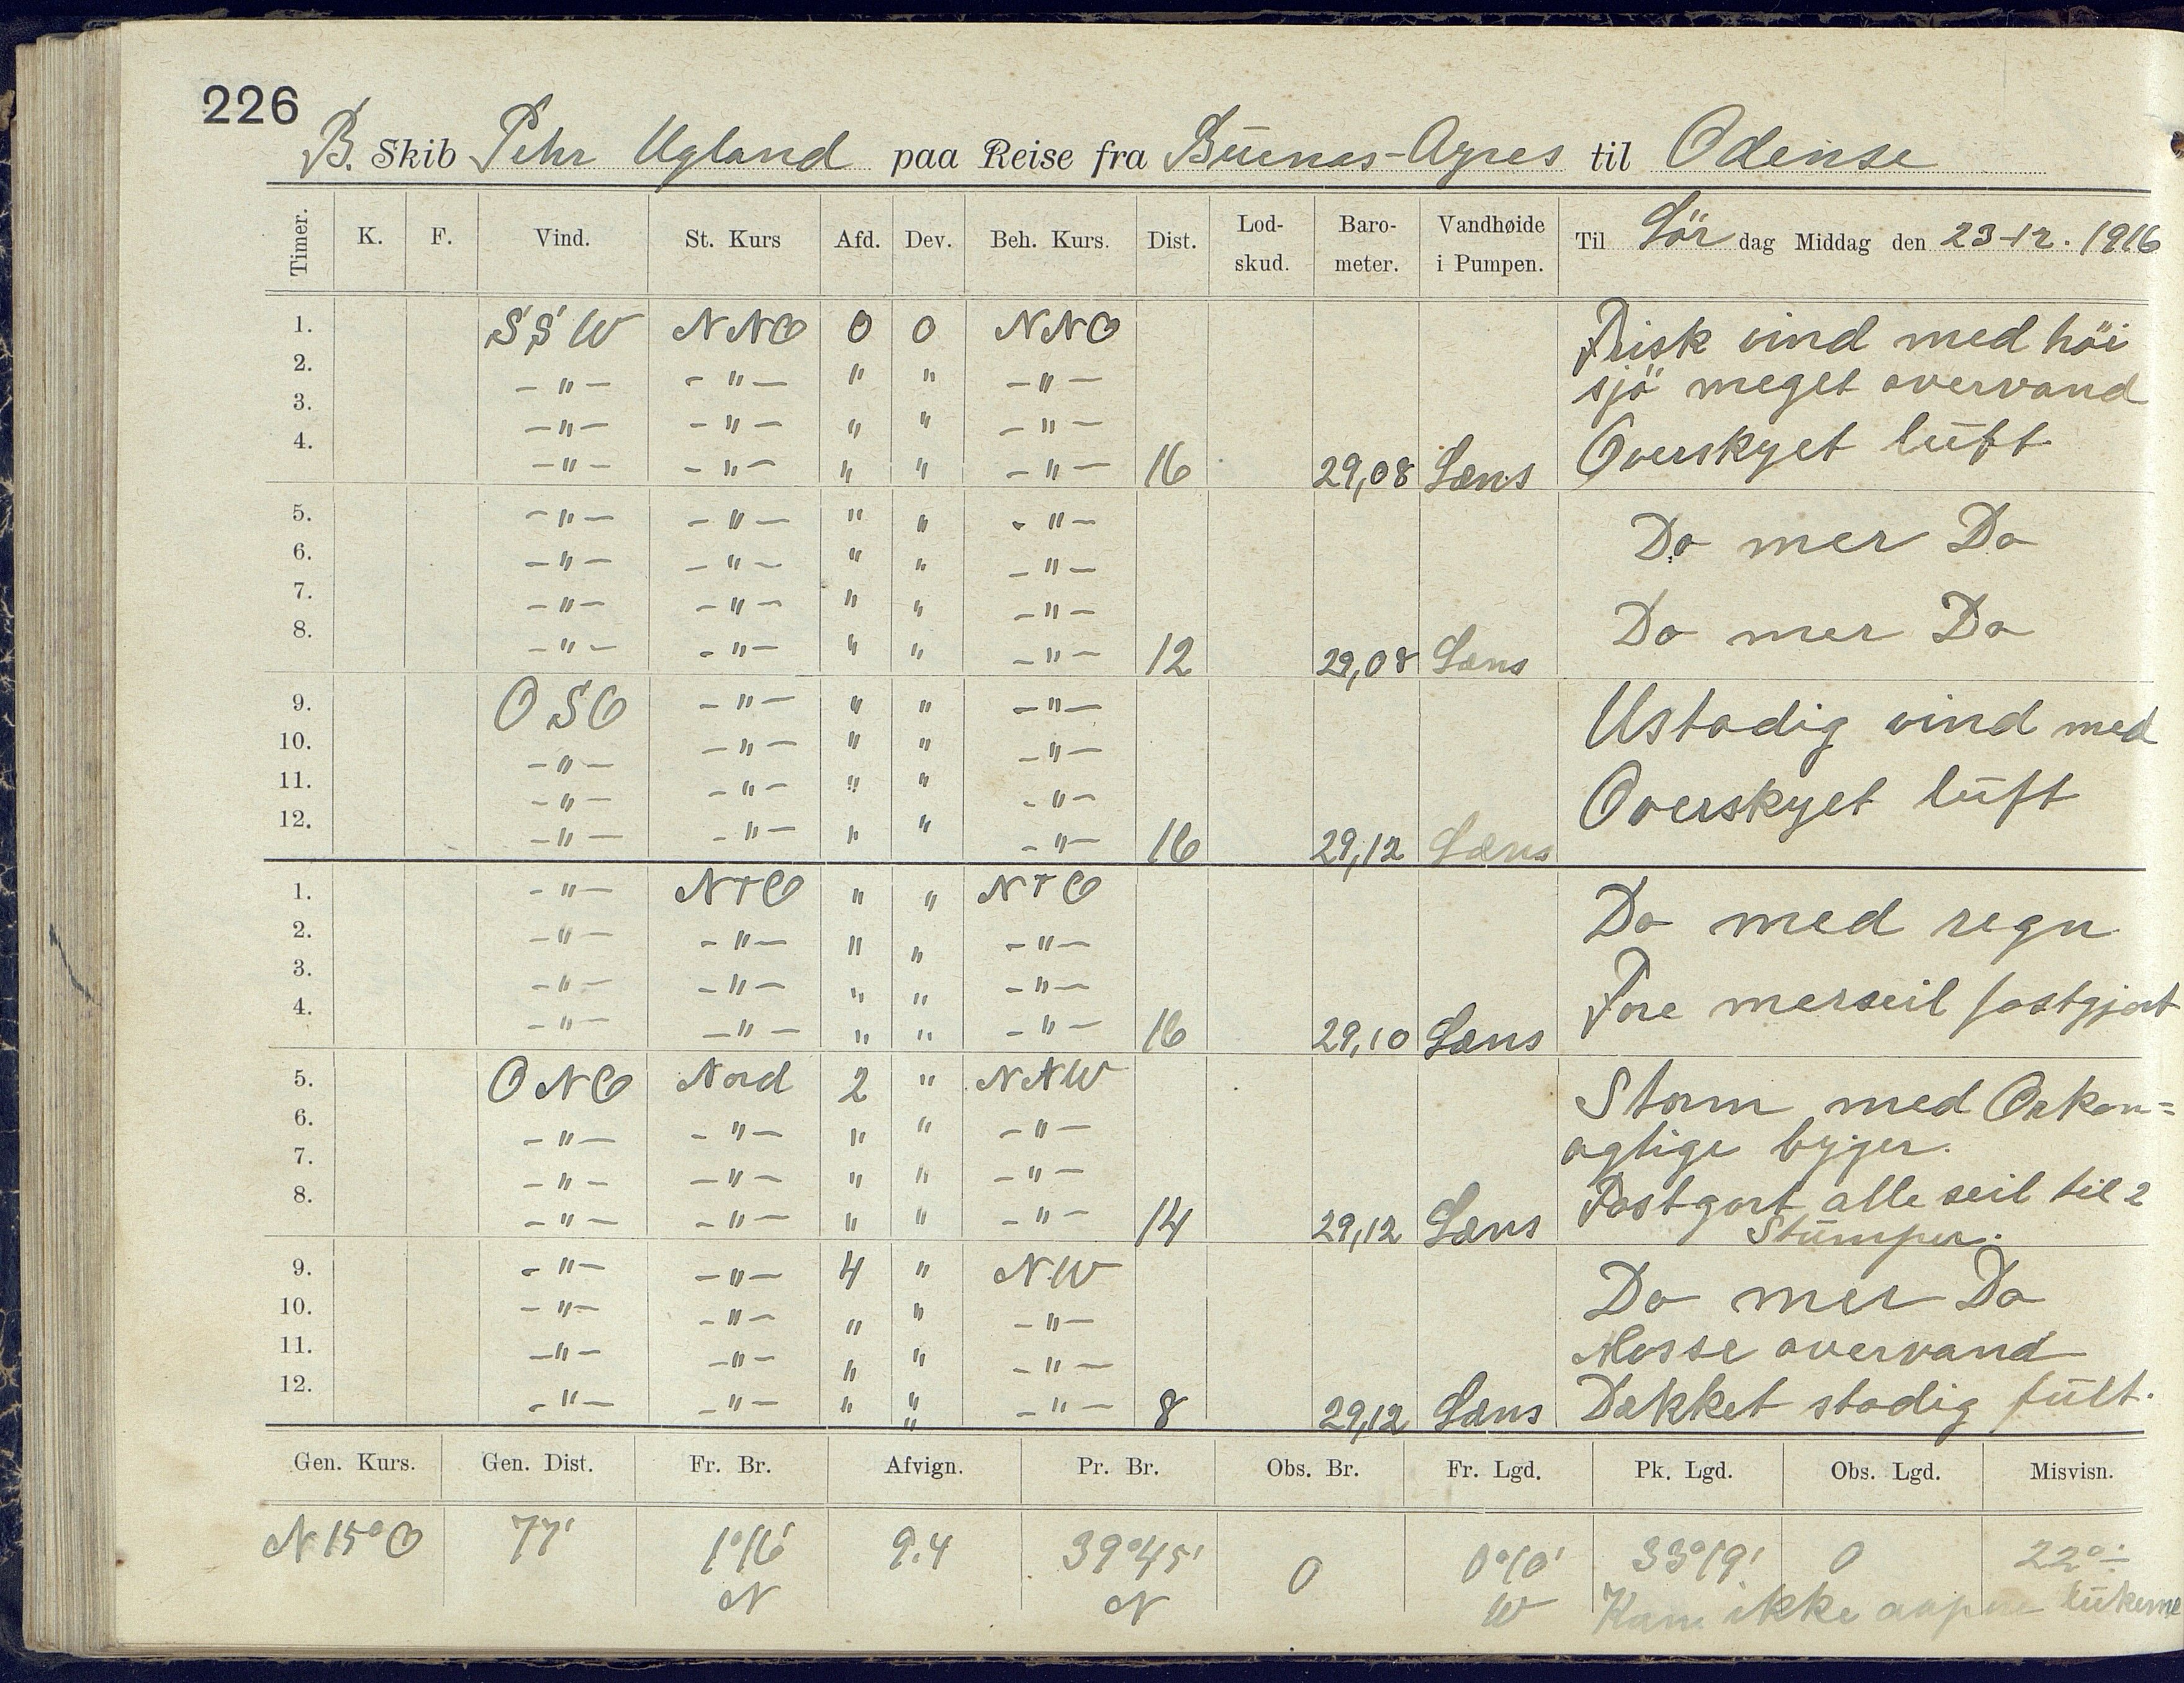 226
B. Skib Pehr Ugland paa Reise fra Buenos-Ayres til Odense
Timer. K. F. Vind. St. Kurs Afd. Dev. Beh. Kurs. Dist. Lod-skud. Baro-meter. Vandhøide i Pumpen. Til Lör dag Middag den 23-12. 1916
1. SSW NNO 0 0 NNO Frisk vind med höi
2. -"- -"- " " -"- sjö meget overvand
3. -"- -"- " " -"-
4. -"- -"- " " -"- 16 29,08 Læns Overskyet luft
5. -"- -"- " " -"- Do mer Do
6. -"- -"- " " -"-
7. -"- -"- " " -"- Do mer Do
8. -"- -"- " " -"- 12 29,08 Læns
9. OSO -"- " " -"- Ustadig vind med
10. -"- -"- " " -"-
11. -"- -"- " " -"- Overskyet luft
12. -"- -"- " " -"- 16 29,12 Læns
1. -"- N t O " " N t O Do med regn
2. -"- -"- " " -"-
3. -"- -"- " " -"- Fore merseil fastgjort
4. -"- -"- " " -"- 16 29,10 Læns
5. ONO Nord 2 " NNW Storm med Orkan=
6. -"- -"- " " -"- agtige byger.
7. -"- -"- " " -"- Fastgort alle seil til 2
8. -"- -"- " " -"- 14 29,12 Læns Stumper.
9. -"- -"- 4 " NW Do mer Do
10. -"- -"- " " -"-
11. -"- -"- " " -"- Masse overvand
12. -"- -"- " " -"- 8 29,12 Læns Dækket stadig fult.
"
Gen. Kurs. Gen. Dist. Fr. Br. Afvign. Pr. Br. Obs. Br. Fr. Lgd. Pk. Lgd. Obs. Lgd. Misvisn.
N 15° O 77' 1°16' 9.4 39°45' 0 0°10' 33°19' 0 22° ÷
N N W Kan ikke aapne lukerne